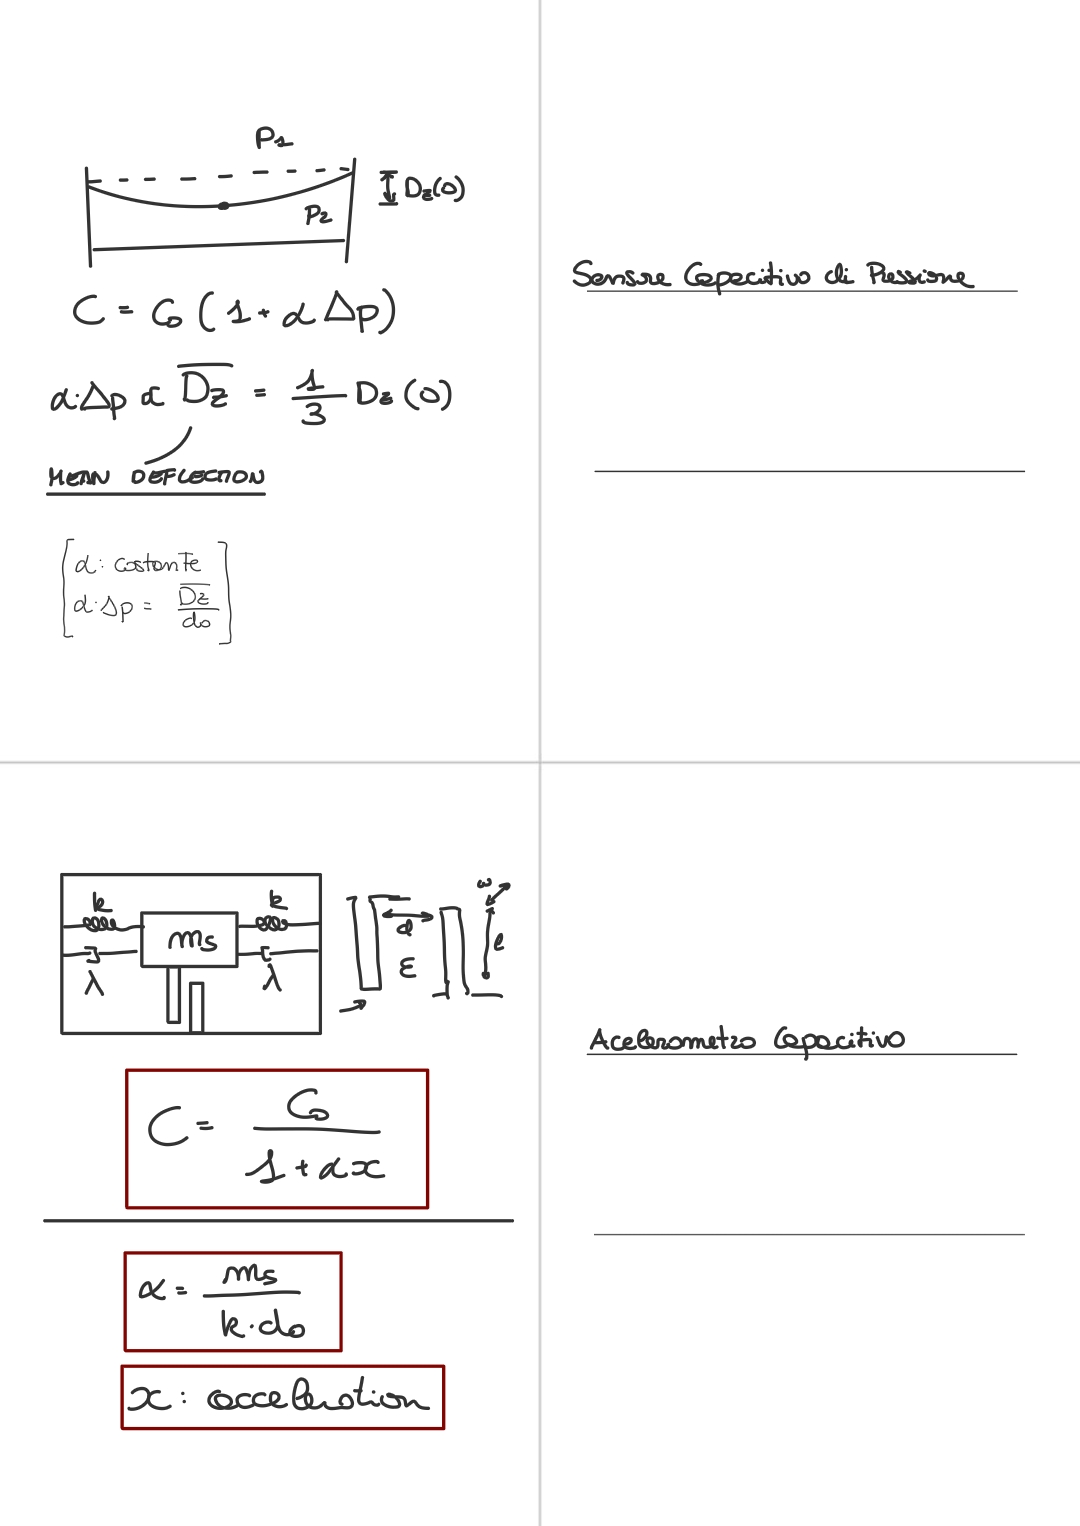 P1
Dz(0)
P2
C = C0 (1 + α Δp)
α·Δp ∝ D̅z̅ = 1/3 Dz(0)
MEAN DEFLECTION
α: costante
α·Δp = D̅z̅/d0
Sensore Capacitivo di Pressione
k k
ms
λ λ
d
ε
w
l
C = C0/(1 + αx)
α = ms/(k·d0)
x: acceleration
Acelerometro Capacitivo